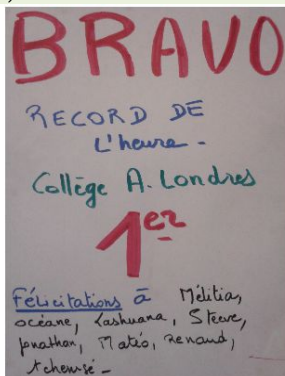 BRAVO
RECORD DE
L'heure -
Collège A. Londres
1er
Félicitations à Mélitia,
océane, Lashuana, Steeve,
Jonathan, Matéo, Renaud,